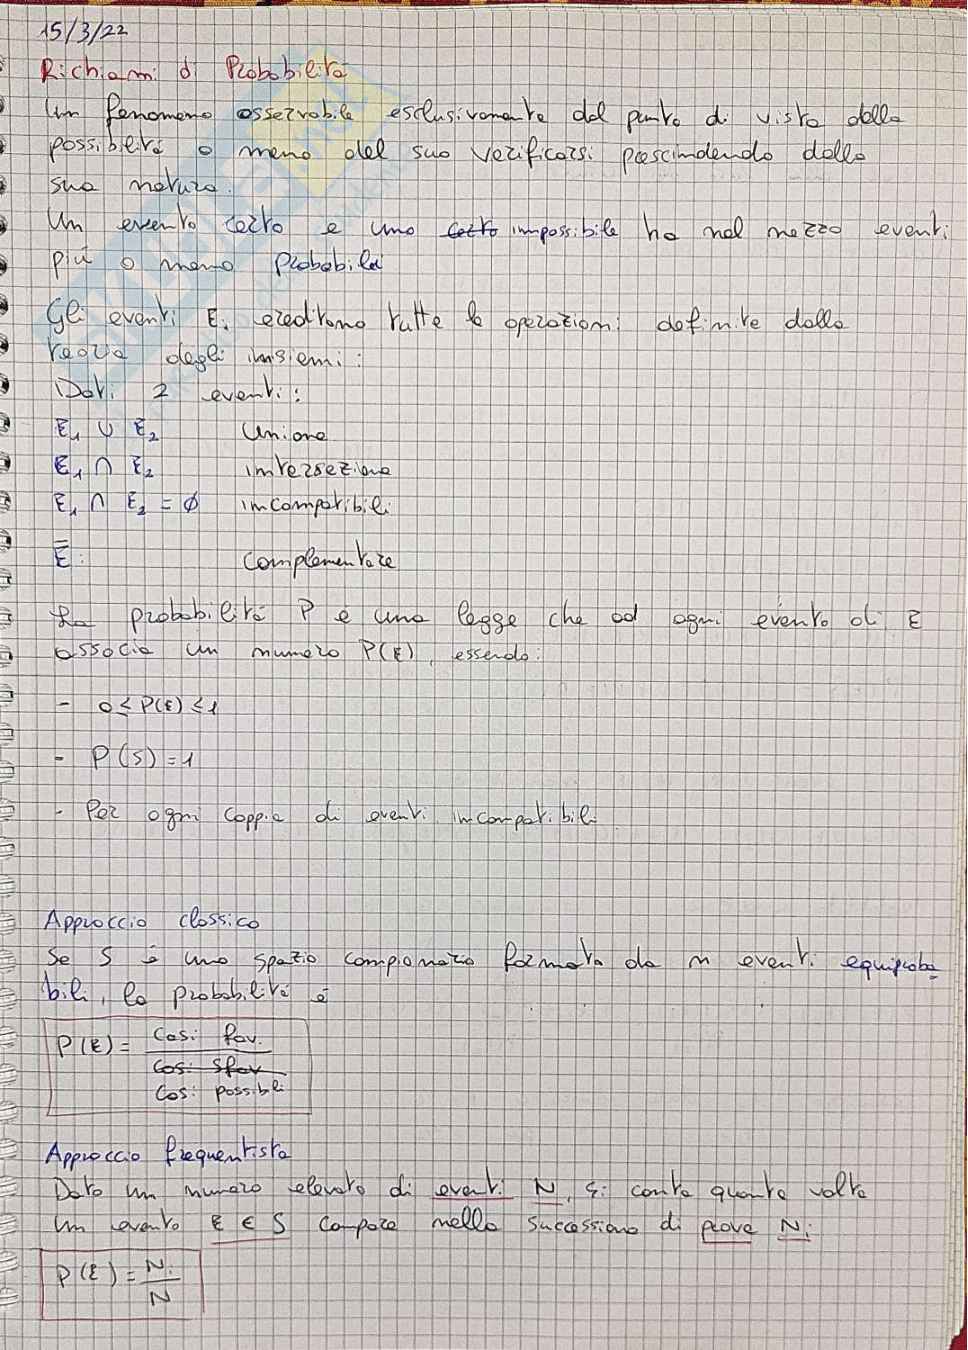 15/3/22
Richiami di Probabilità
Un fenomeno osservabile esclusivamente dal punto di vista della
possibilità o meno del suo verificarsi prescindendo dalla
sua natura.
Un evento certo e uno certo impossibile ha nel mezzo eventi
più o meno probabili
Gli eventi Ei ereditano tutte le operazioni definite dalla
teoria degli insiemi:
Dati 2 eventi:
E1 ∪ E2 Unione
E1 ∩ E2 intersezione
E1 ∩ E2 = ∅ incompatibili
Ē: complementare
La probabilità P è una legge che ad ogni evento di E
associa un numero P(E), essendo:
- 0 ≤ P(E) ≤ 1
- P(S) = 1
- Per ogni coppia di eventi incompatibili
Approccio classico
Se S è uno spazio campionario formato da n eventi equiproba
bili, la probabilità è
P(E) = Casi fav.
Casi sfav
Casi possibili
Approccio frequentista
Dato un numero elevato di eventi N, si conta quante volte
un evento E ∈ S compare nella successione di prove Ni
P(E) = Ni
N